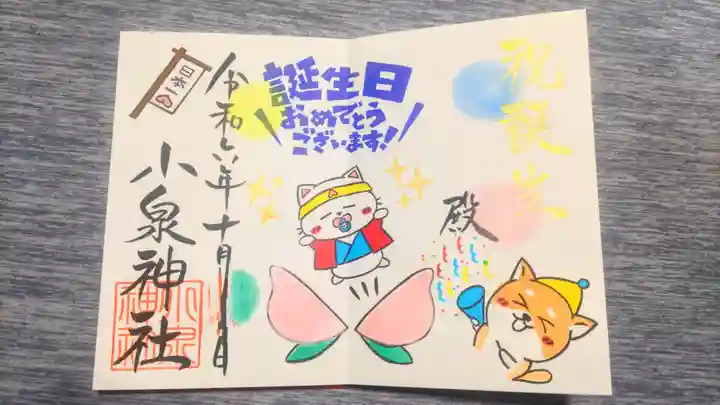 祝誕生
殿
誕生日
おめでとう
ございます!
令和六年十月一日
小泉神社
日本一